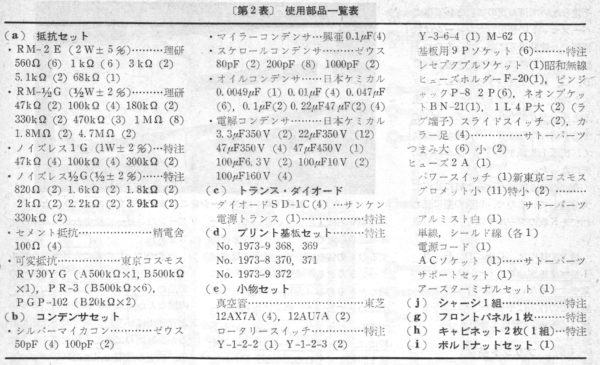 〔第2表〕 使用部品一覧表
(a) 抵抗セット
・RM-2E (2W±5%)………理研
560Ω (6) 1kΩ (6) 3kΩ (2)
5.1kΩ (2) 68kΩ (1)
・RM-½G (½W±2%)………理研
47kΩ (2) 100kΩ (4) 180kΩ (2)
330kΩ (2) 470kΩ (3) 1MΩ (8)
1.8MΩ (2) 4.7MΩ (2)
・ノイズレス1G (1W±2%)…特注
47kΩ (4) 100kΩ (4) 300kΩ (2)
・ノイズレス½G(½±2%)…特注
820Ω (2) 1.6kΩ (2) 1.8kΩ (2)
2kΩ (2) 2.2kΩ (2) 3.9kΩ (2)
330kΩ (2)
・セメント抵抗………………精電舎
100Ω (4)
・可変抵抗………………東京コスモス
RV30YG (A500kΩ×1, B500kΩ
×1), PR-3 (B500kΩ×6),
PGP-102 (B20kΩ×2)
(b) コンデンサセット
・シルバーマイカコン…………ゼウス
50pF (4) 100pF (2)
・マイラーコンデンサ…興亜0.1μF(4)
・スケロールコンデンサ………ゼウス
80pF (2) 200pF (8) 1000pF (2)
・オイルコンデンサ……日本ケミカル
0.0049μF (1) 0.01μF (4) 0.047μF
(6), 0.1μF(2) 0.22μF 47μF(2) (4)
・電解コンデンサ………日本ケミカル
3.3μF350V (2) 22μF350V (12)
47μF350V (4) 47μF450V (1)
100μF6.3V (2) 100μF10V (2)
100μF160V (4)
(c) トランス・ダイオード
ダイオードSD-1C(4) …サンケン
電源トランス (1)……………特注
(d) プリント基板セット………特注
No. 1973-9 368, 369
No. 1973-8 370, 371
No. 1973-9 372
(e) 小物セット
真空管…………………………東芝
12AX7A (4), 12AU7A (2)
ロータリースイッチ…………特注
Y-1-2-2 (1) Y-1-2-3 (2)
Y-3-6-4 (1) M-62 (1)
基板用9Pソケット (6)………特注
レセプタブルソケット (1)昭和無線
ヒューズホルダーF-20(1), ピンジ
ャックP-8 2P(6), ネオンブケッ
トBN-21(1), 1L4P大 (2) (ラ
グ端子) スライドスイッチ(2), カ
ラー足 (4)……………サトーパーツ
つまみ大 (6) 小 (2)
ヒューズ2A (1)
パワースイッチ (1)新東京コスモス
グロメット小 (11)特小 (2) ………
サトーパーツ
アルミスト白 (1)
単線, シールド線 (各1)
電源コード (1)
ACソケット (1)……サトーパーツ
サポートセット (1)
アースターミナルセット (1)
(j) シャーシ1組………………特注
(g) フロントパネル1枚………特注
(h) キャビネット2枚(1組)…特注
(i) ボルトナットセット (1)